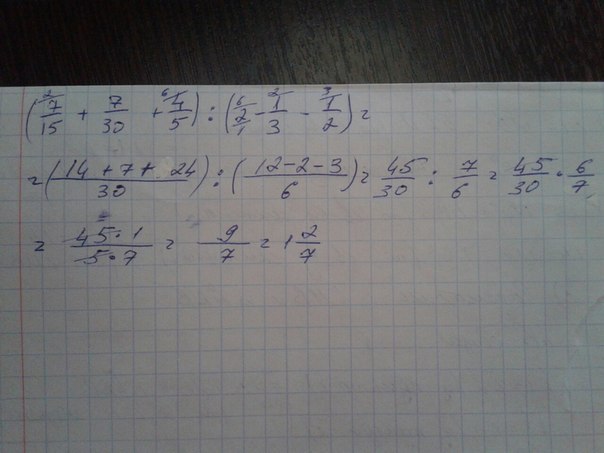 (7²/15 + 7/30 + 4⁶/5) : (2⁶/1 - 1²/3 - 1³/2) =
= (14 + 7 + 24 / 30) : (12 - 2 - 3 / 6) = 45/30 : 7/6 = 45/30 · 6/7
= 45 · 1 / 5 · 7 = 9/7 = 1 2/7